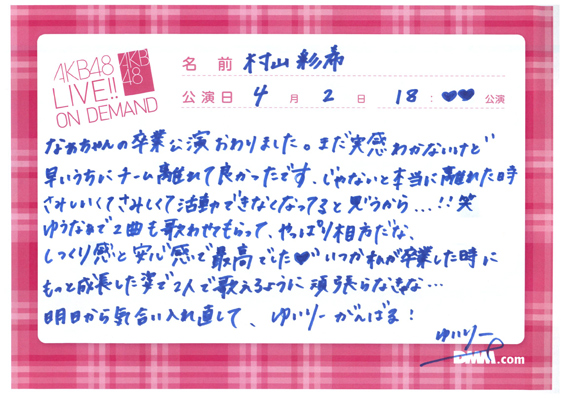 AKB48
LIVE!!
ON DEMAND
AKB
48
名 前 村山 彩希
公演日 4 月 2 日 18 : ♥♥ 公演
なぁちゃんの卒業公演おわりました。まだ実感わかないけど
早いうちにチーム離れて良かったです、じゃないと本当に離れた時
さみしいくてさみしくて活動できなくなってると思うから...!! 笑
ゆうなぁで2曲も歌わせてもらって、やっぱり相方だな、
しっくり感と安心感で最高でした♥いつか私が卒業した時に
もっと成長した姿で2人で歌えるように頑張らなきゃな...
明日から気合い入れ直して、ゆいりーがんばる!
ゆいりー
DMM.com